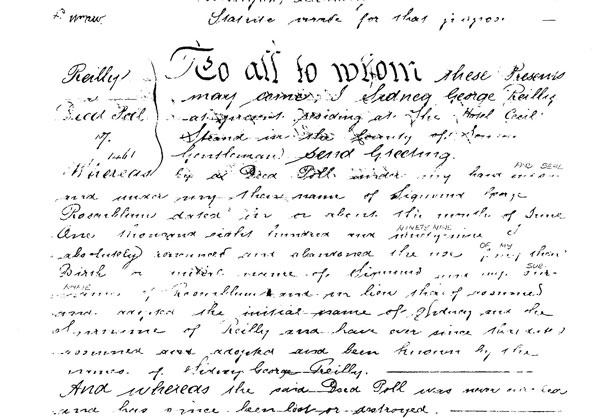 Statute made for that purpose —
Reilly To all to whom these Presents
may come I Sidney George Reilly
Deed Poll at present residing at the Hotel Cecil
Strand in the County of
Gentleman Send Greeting.
Whereas by a Deed Poll under my hand AND SEAL
and under my then name of Sigmund George
Rosenblum dated in or about the month of June
One thousand eight hundred and NINETY NINE ninety-nine I
absolutely renounced and abandoned the use OF MY my then
Birth or initial name of Sigmund and my SUR-
NAME name of Rosenblum and in lieu thereof assumed
and adopted the initial name of Sidney and the
surname of Reilly and have ever since
assumed and adopted and been known by the
names of Sidney George Reilly.
And whereas the said Deed Poll was never
and has since been lost or destroyed.